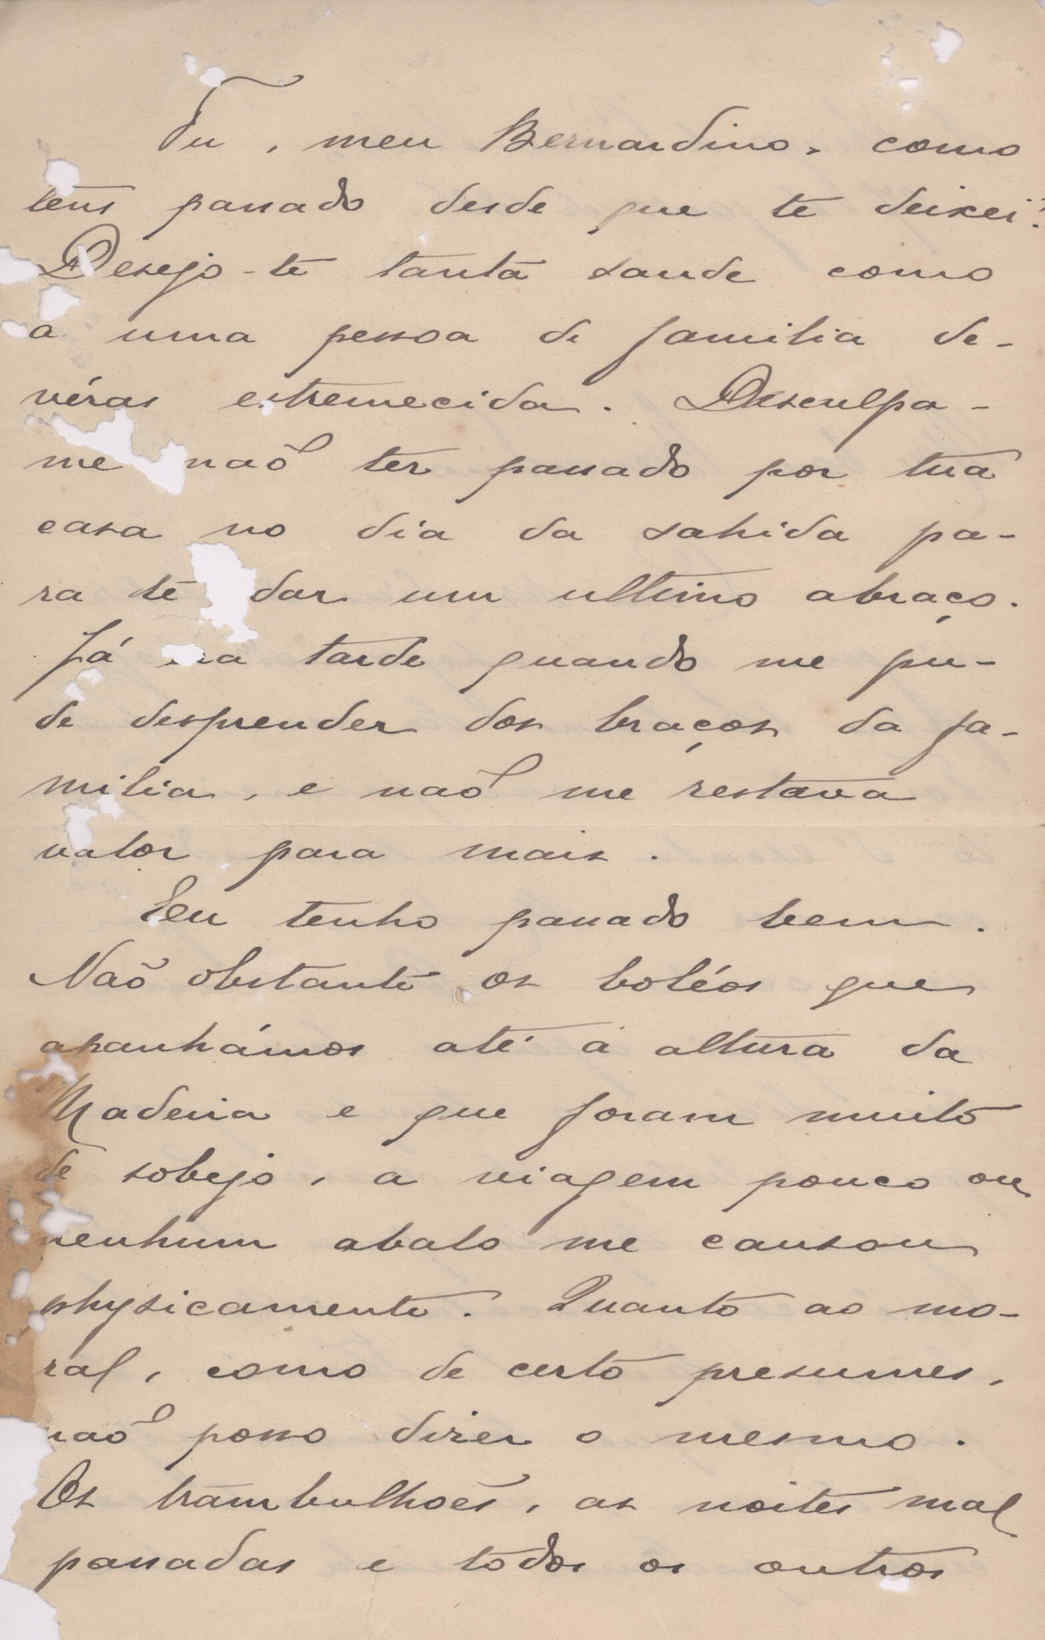 Tu, meu Bernardino, como
tens passado desde que te deixei?
Desejo-te tanta saude como
a uma pessoa de familia de-
véras estremecida. Desculpa-
me naõ ter passado por tua
casa no dia da sahida pa-
ra te dar um ultimo abraço.
Já era tarde quando me pu-
de desprender dos braços da fa-
milia, e naõ me restava
valor para mais.
Eu tenho passado bem.
Naõ obstante os boléos que
apanhámos até á altura da
Madeira e que foram muito
de sobejo, a viagem pouco ou
nenhum abalo me causou
physicamente. Quanto ao mo-
ral, como de certo presumes,
naõ posso dizer o mesmo.
Os trambulhoẽs, as noites mal
passadas e todos os outros